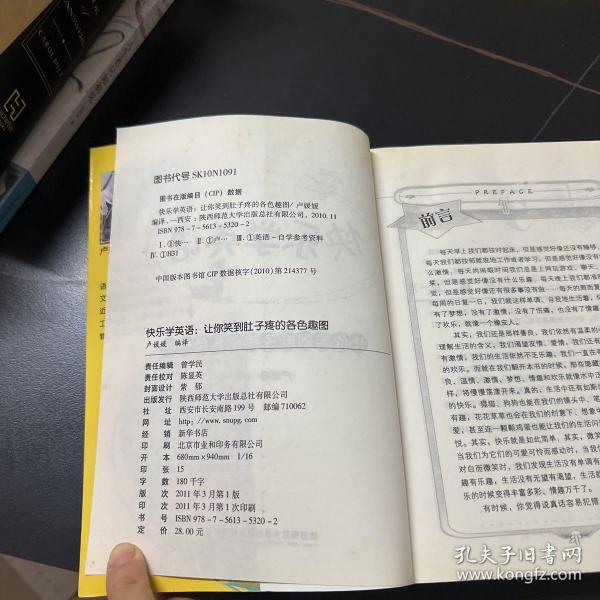 图书代号 SK10N1091
图书在版编目(CIP)数据
快乐学英语:让你笑到肚子疼的各色趣图/卢媛媛
编译.—西安:陕西师范大学出版总社有限公司,2010.11
ISBN 978-7-5613-5320-2
Ⅰ.①快… Ⅱ.①卢… Ⅲ.①英语-自学参考资料
Ⅳ.①H31
中国版本图书馆CIP数据核字(2010)第214377号
快乐学英语:让你笑到肚子疼的各色趣图
卢媛媛 编译
责任编辑 曾学民
责任校对 陈显英
封面设计 紫郁
出版发行 陕西师范大学出版总社有限公司
社址 西安市长安南路199号 邮编710062
网址 http://www.snupg.com
经销 新华书店
印刷 北京市业和印务有限公司
开本 680mm×940mm 1/16
印张 15
字数 180千字
版次 2011年3月第1版
印次 2011年3月第1次印刷
书号 ISBN 978-7-5613-5320-2
定价 28.00元
PREFACE
前言
每天早上我们都按时起床,但是感觉好像还没有睡够,
每天我们都按部就班地工作或者学习,但是感觉好像没有什
么激情,每天的闲暇时间我们总是上网玩游戏、聊天、
是,但是感觉好像没有什么乐趣,每天晚上我们都准
觉,但是感觉好像还有很多事没有做……每天的周而复
每周的日复一日,我们就这样单调、自我地生活着,
有了梦想,没有了激情,没有了伤痛,也没有了情趣
了欢乐,就像一个橡皮人。
其实,我们还是那样善良,我们依然有温柔的
理解生活的含义。我们渴望友情、爱情,我们还有
有激情,我们的生活依然不乏乐趣。我们一直在寻
的欢乐。而就在我们翻开本书的时候,那些我们
良、温情、激情、梦想、情趣和欢乐就像水中泛
样,将慢慢荡漾开来。真的,生活中还有如斯
的快乐。猫猫、狗狗也能在我们的镜头中、笔
有趣,花花草草也会在我们的创意下、想象中
爱,甚至连一颗颗鸡蛋也能让我们的生活闪
悦。其实,快乐就是如此简单,其实,微笑
当我们为它们的可爱可怜而感动时,当我
对白而微笑时,我们发现生活没有单调有
趣有乐趣,生活没有无望有渴望,生活
乐的时候变得丰富多彩、情趣万千了。
有时候,你觉得说真话容易犯错
孔夫子旧书网
www.kongfz.com